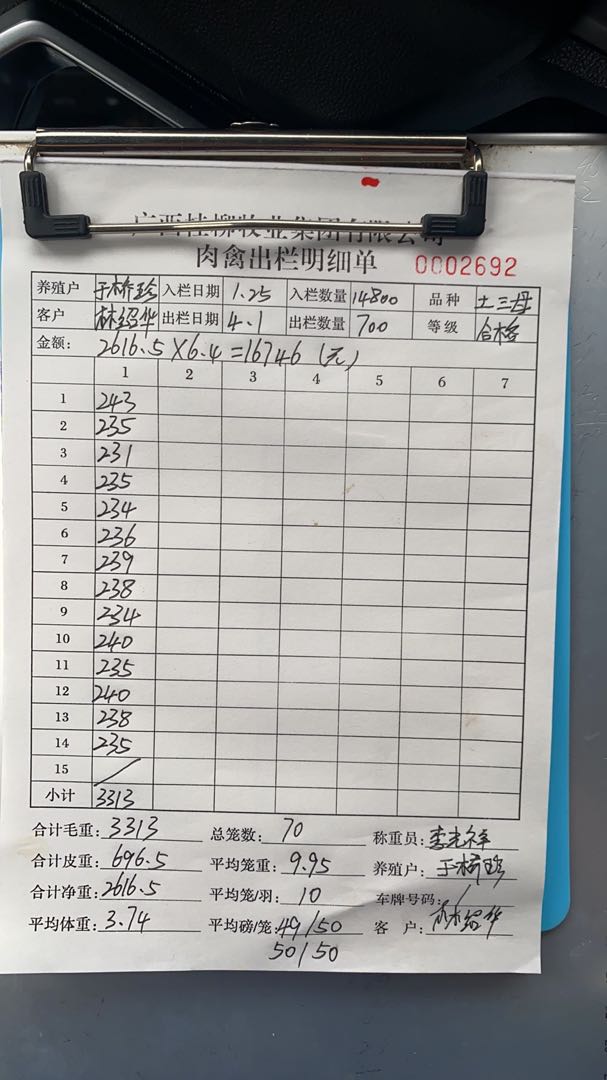 广西桂柳牧业集团有限公司
肉禽出栏明细单 0002692
养殖户 于桥珍 入栏日期 1.25 入栏数量 14800 品种 土三母
客户 林绍华 出栏日期 4.1 出栏数量 700 等级 合格
金额: 2616.5×6.4=16746(元)
1 2 3 4 5 6 7
1 243
2 235
3 231
4 235
5 234
6 236
7 239
8 238
9 234
10 240
11 235
12 240
13 238
14 235
15 /
小计 3313
合计毛重: 3313 总笼数: 70 称重员: 李光祥
合计皮重: 696.5 平均笼重: 9.95 养殖户: 于桥珍
合计净重: 2616.5 平均笼/羽: 10 车牌号码: /
平均体重: 3.74 平均磅/笼: 49/50 客 户: 林绍华
50/50